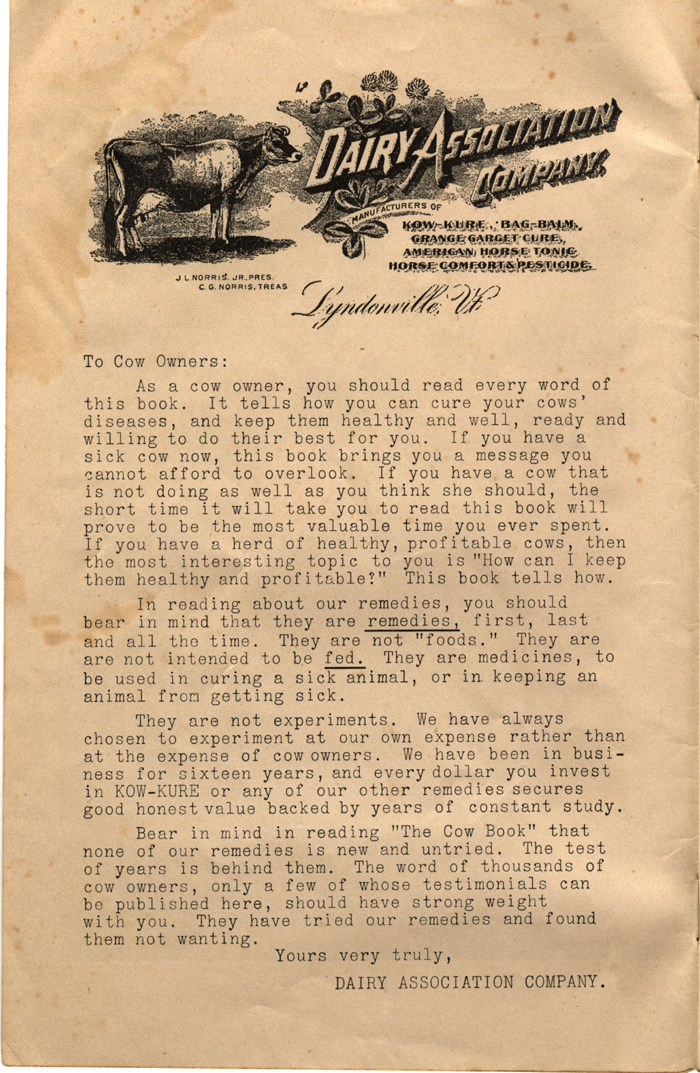 DAIRY ASSOCIATION
COMPANY.
MANUFACTURERS OF
KOW-KURE, BAG-BALM,
GRANGE GARGET CURE,
AMERICAN HORSE TONIC
HORSE COMFORT & PESTICIDE.
J.L. NORRIS. JR., PRES.
C.G. NORRIS, TREAS
Lyndonville, Vt
To Cow Owners:
As a cow owner, you should read every word of
this book. It tells how you can cure your cows'
diseases, and keep them healthy and well, ready and
willing to do their best for you. If you have a
sick cow now, this book brings you a message you
cannot afford to overlook. If you have a cow that
is not doing as well as you think she should, the
short time it will take you to read this book will
prove to be the most valuable time you ever spent.
If you have a herd of healthy, profitable cows, then
the most interesting topic to you is "How can I keep
them healthy and profitable?" This book tells how.
In reading about our remedies, you should
bear in mind that they are remedies, first, last
and all the time. They are not "foods." They are
are not intended to be fed. They are medicines, to
be used in curing a sick animal, or in keeping an
animal from getting sick.
They are not experiments. We have always
chosen to experiment at our own expense rather than
at the expense of cow owners. We have been in busi-
ness for sixteen years, and every dollar you invest
in KOW-KURE or any of our other remedies secures
good honest value backed by years of constant study.
Bear in mind in reading "The Cow Book" that
none of our remedies is new and untried. The test
of years is behind them. The word of thousands of
cow owners, only a few of whose testimonials can
be published here, should have strong weight
with you. They have tried our remedies and found
them not wanting.
Yours very truly,
DAIRY ASSOCIATION COMPANY.